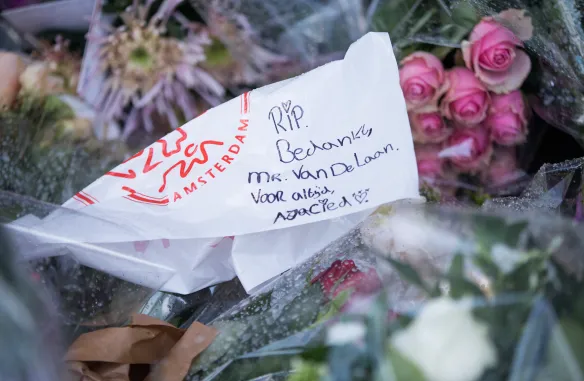 AMSTERDAM
RIP.
Bedankt,
mr. van De Laan.
Voor altijd,